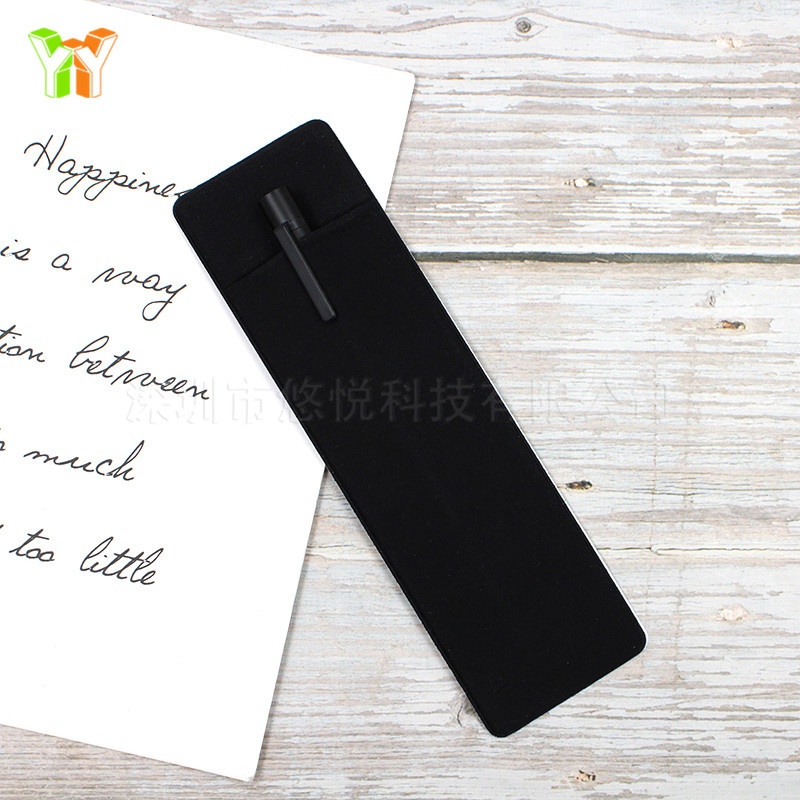 YY
Happine
is a way
tion between
much
too little
深圳市悠悦科技有限公司